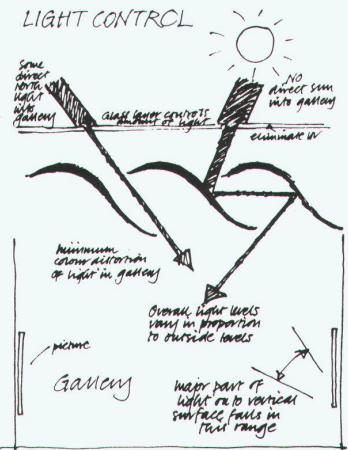 LIGHT CONTROL
Some
direct
north
light
into
gallery
Glass layer controls
amount of light
NO
direct sun
into gallery
eliminate UV
minimum
colour distortion
of light in gallery
Overall light levels
vary in proportion
to outside levels
picture
Gallery
major part of
light on to vertical
surface falls in
this range